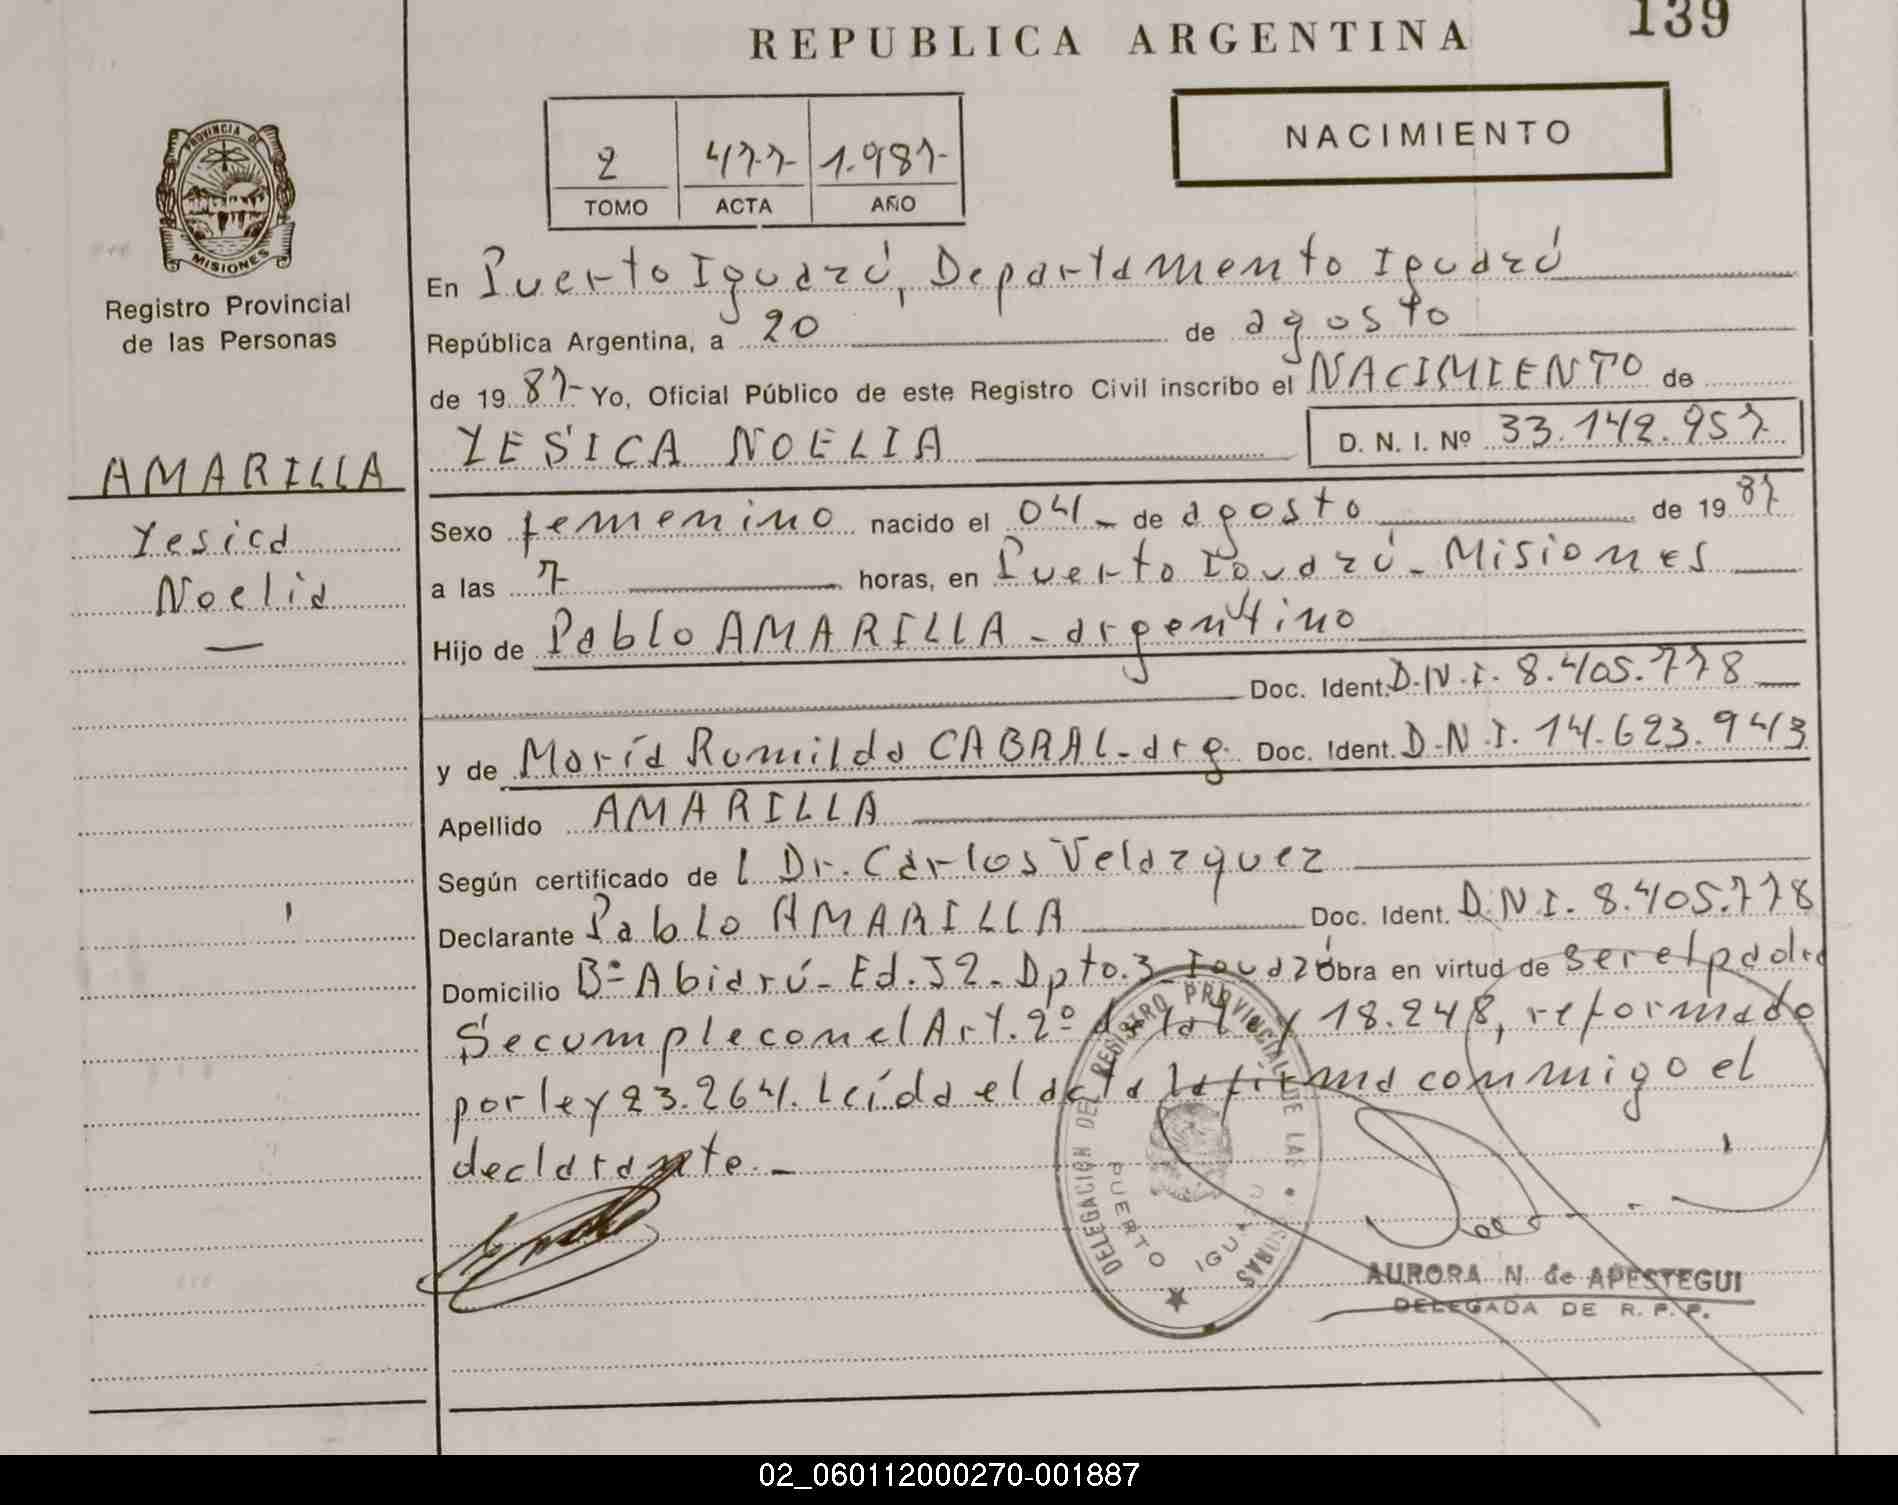 REPUBLICA ARGENTINA
139
2
477-
1.987-
TOMO
ACTA
AÑO
NACIMIENTO
PROVINCIA DE
MISIONES
Registro Provincial
de las Personas
AMARILLA
Yesica
Noelia
En Puerto Iguazú, Departamento Iguazú
República Argentina, a 20 de agosto
de 19 87- Yo, Oficial Público de este Registro Civil inscribo el NACIMIENTO de
YESICA NOELIA D. N. I. Nº 33.142.957
Sexo femenino nacido el 04- de agosto de 19 87
a las 7 horas, en Puerto Iguazú - Misiones
Hijo de Pablo AMARILLA - argentino
Doc. Ident. D.N.I. 8.405.778
y de María Romilda CABRAL - arg. Doc. Ident. D.N.I. 14.623.943
Apellido AMARILLA
Según certificado de l Dr. Carlos Velazquez
Declarante Pablo AMARILLA Doc. Ident. D.N.I. 8.405.778
Domicilio Bº Abiarú - Ed. 52 - Dpto. 3 - Iguazú Obra en virtud de ser el padre
Se cumple con el Art. 2º de la ley 18.248, reformado
por ley 23.264. Leída el acta la firma conmigo el
declarante.-
DELEGACION DEL REGISTRO PROVINCIAL DE LAS PERSONAS
PUERTO IGUAZU
AURORA N. de APESTEGUI
DELEGADA DE R. P. P.
02_060112000270-001887